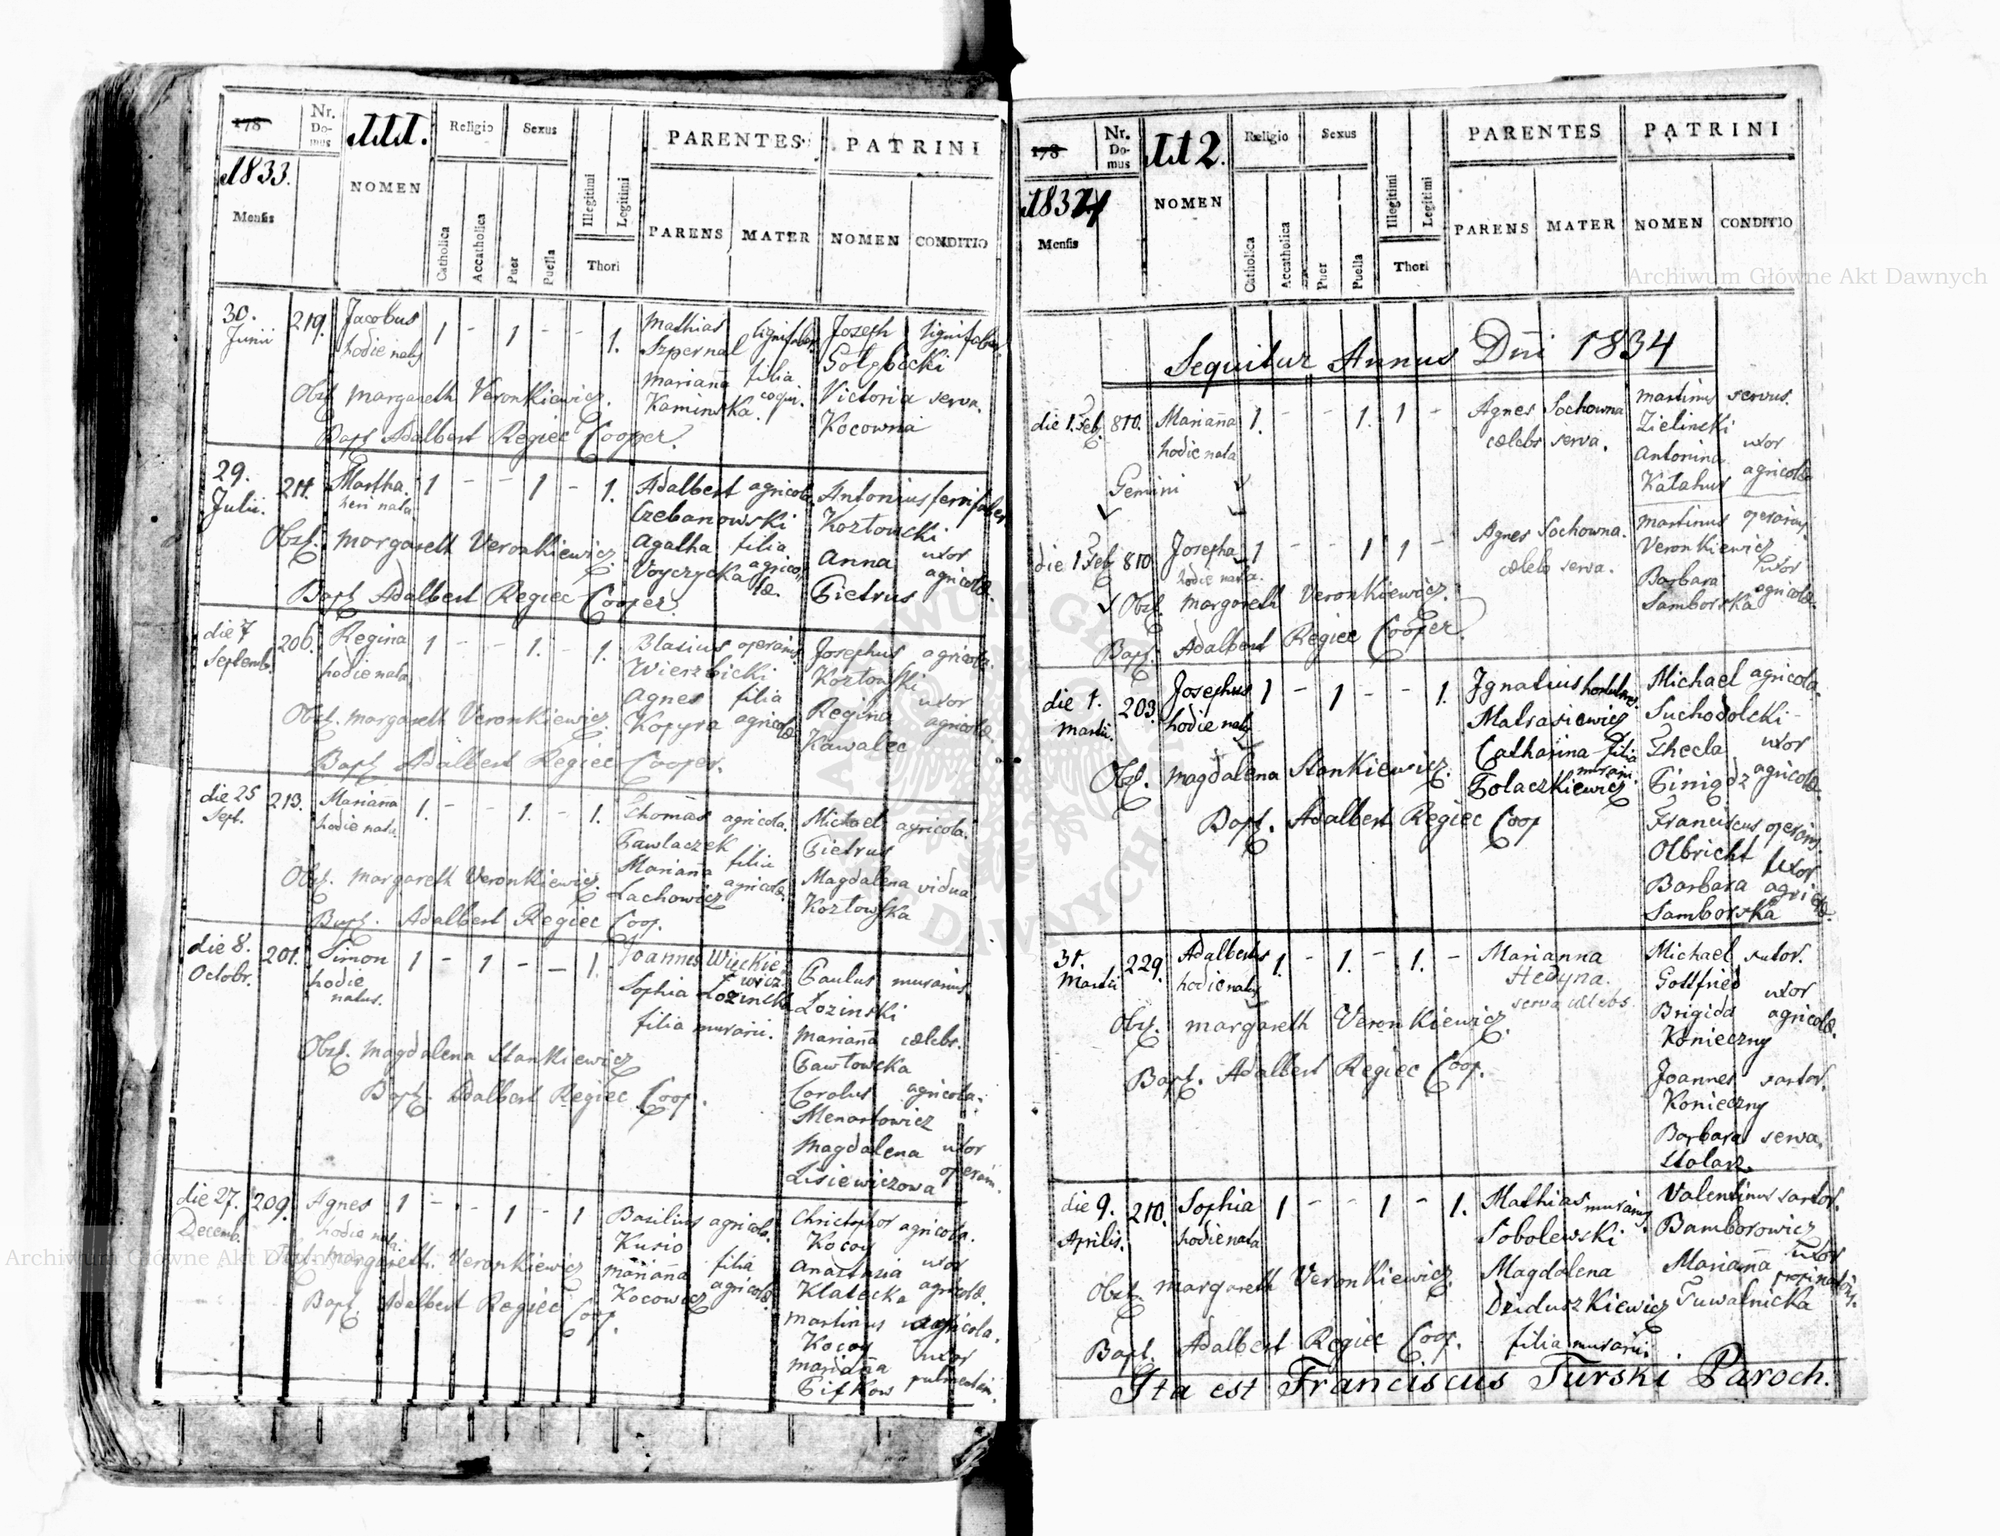 178
Nr. Domus
111.
Religio
Sexus
PARENTES
PATRINI
1833.
NOMEN
Mensis
Catholica
Accatholica
Puer
Puella
Illegitimi
Legitimi
Thori
PARENS
MATER
NOMEN
CONDITIO
30. Junii
219.
Jacobus
hodie natus
1 - 1 - - 1.
Mathias lignifaber
Szpernal
Marianna filia
Kaminska. coqui.
Joseph lignifaber
Gołgbecki
Victoria serva.
Kocowna
Obst. Margareth Veronkiewicz.
Bapt. Adalbert Regiec Cooper.
29. Julii.
211.
Martha.
heri nata.
1 - - 1 - 1.
Adalbert agricola
Czebanowski
Agatha filia
Voyczycka agricolæ.
Antonius ferrifaber
Kozłowski
Anna uxor
Pietrus agricolæ.
Obst. Margareth Veronkiewicz.
Bapt. Adalbert Regiec Cooper.
die 7 Septemb.
206.
Regina
hodie nata.
1 - - 1. - 1.
Blasius operarius
Wierzbicki
Agnes filia
Kopyra agricolæ
Josephus agricola.
Kozłowski
Regina uxor
Kawalec agricolæ.
Obst. Margareth Veronkiewicz.
Bapt. Adalbert Regiec Cooper.
die 25 Sept.
213.
Marianna
hodie nata.
1. - - 1. - 1.
Thomas agricola.
Pawlaczek
Marianna filia
Lachowicz agricolæ
Michael agricola.
Pietrus
Magdalena vidua
Kozłowska
Obst. Margareth Veronkiewicz.
Bapt. Adalbert Regiec Coop.
die 8. Octobr.
201.
Simon
hodie
natus.
1 - 1 - - 1.
Joannes Więkiewicz
Sophia Łozinska
filia murarii.
Paulus murarius.
Łozinski
Marianna cælebs.
Pawłowska
Carolus agricola.
Menartowicz
Magdalena uxor
Lisiewiczowa operarii.
Obst. Magdalena Stankiewicz
Bapt. Adalbert Regiec Coop.
die 27. Decemb.
209.
Agnes
hodie nata.
1 - - 1 - 1
Basilius agricola.
Kusio
Marianna filia
Kocowicz agricolæ.
Christophor agricola.
Kocoy
Anastasia uxor
Klatecka agricolæ.
Martinus agricola.
Kocoy
Marianna uxor
Pifkow
Obst. Margareth. Veronkiewicz
Bapt. Adalbert Regiec Coop.
178
Nr. Domus
112.
Religio
Sexus
PARENTES
PATRINI
1834
NOMEN
Mensis
Catholica
Accatholica
Puer
Puella
Illegitimi
Legitimi
Thori
PARENS
MATER
NOMEN
CONDITIO
Sequitur Annus Dni 1834
die 1. Feb.
810.
Marianna
hodie nata
1. - - 1. 1 -
Agnes Sochowna
cælebs serva.
Martinus servus.
Zielinski
Antonina uxor
Katahus agricolæ
Gemini
die 1 Feb
810
Josepha
hodie nata.
1 - - 1 1 -
Agnes Sochowna.
cælebs serva.
Martinus operarius
Veronkiewicz
Barbara uxor
Samborska agricolæ.
Obst. Margareth Veronkiewicz.
Bapt. Adalbert Regiec Cooper.
die 1. Martii.
203.
Josephus
hodie natus
1 - 1 - - 1.
Ignatius hortulanus
Matrasiewicz
Catharina filia
Polaczkiewicz murarii.
Michael agricola.
Suchodolski
Thecla uxor
Pinigdz agricolæ.
Franciscus operarius.
Olbricht
Barbara uxor
Samborska agricolæ.
Obst. Magdalena Stankiewicz.
Bapt. Adalbert Regiec Coop
31. Martii
229.
Adalbertus
hodie natus
1. - 1. - 1. -
Marianna
Hedyna.
serva cælebs
Michael sutor.
Gottfried
Brigida uxor
Konieczny agricolæ
Joannes sartor.
Konieczny
Barbara serva.
Stolarz
Obst. Margareth Veronkiewicz.
Bapt. Adalbert Regiec Coop.
die 9. Aprilis.
210.
Sophia
hodie nata
1 - - 1 - 1.
Mathias murarius
Sobolewski
Magdalena
Dziduszkiewicz
filia murarii.
Valentinus sartor.
Bamborowicz
Marianna uxor
Tuwalnicka propinatoris.
Obst. Margareth Veronkiewicz
Bapt. Adalbert Regiec Coop.
Ita est Franciscus Turski Paroch.
Archiwum Główne Akt Dawnych
Archiwum Główne Akt Dawnych